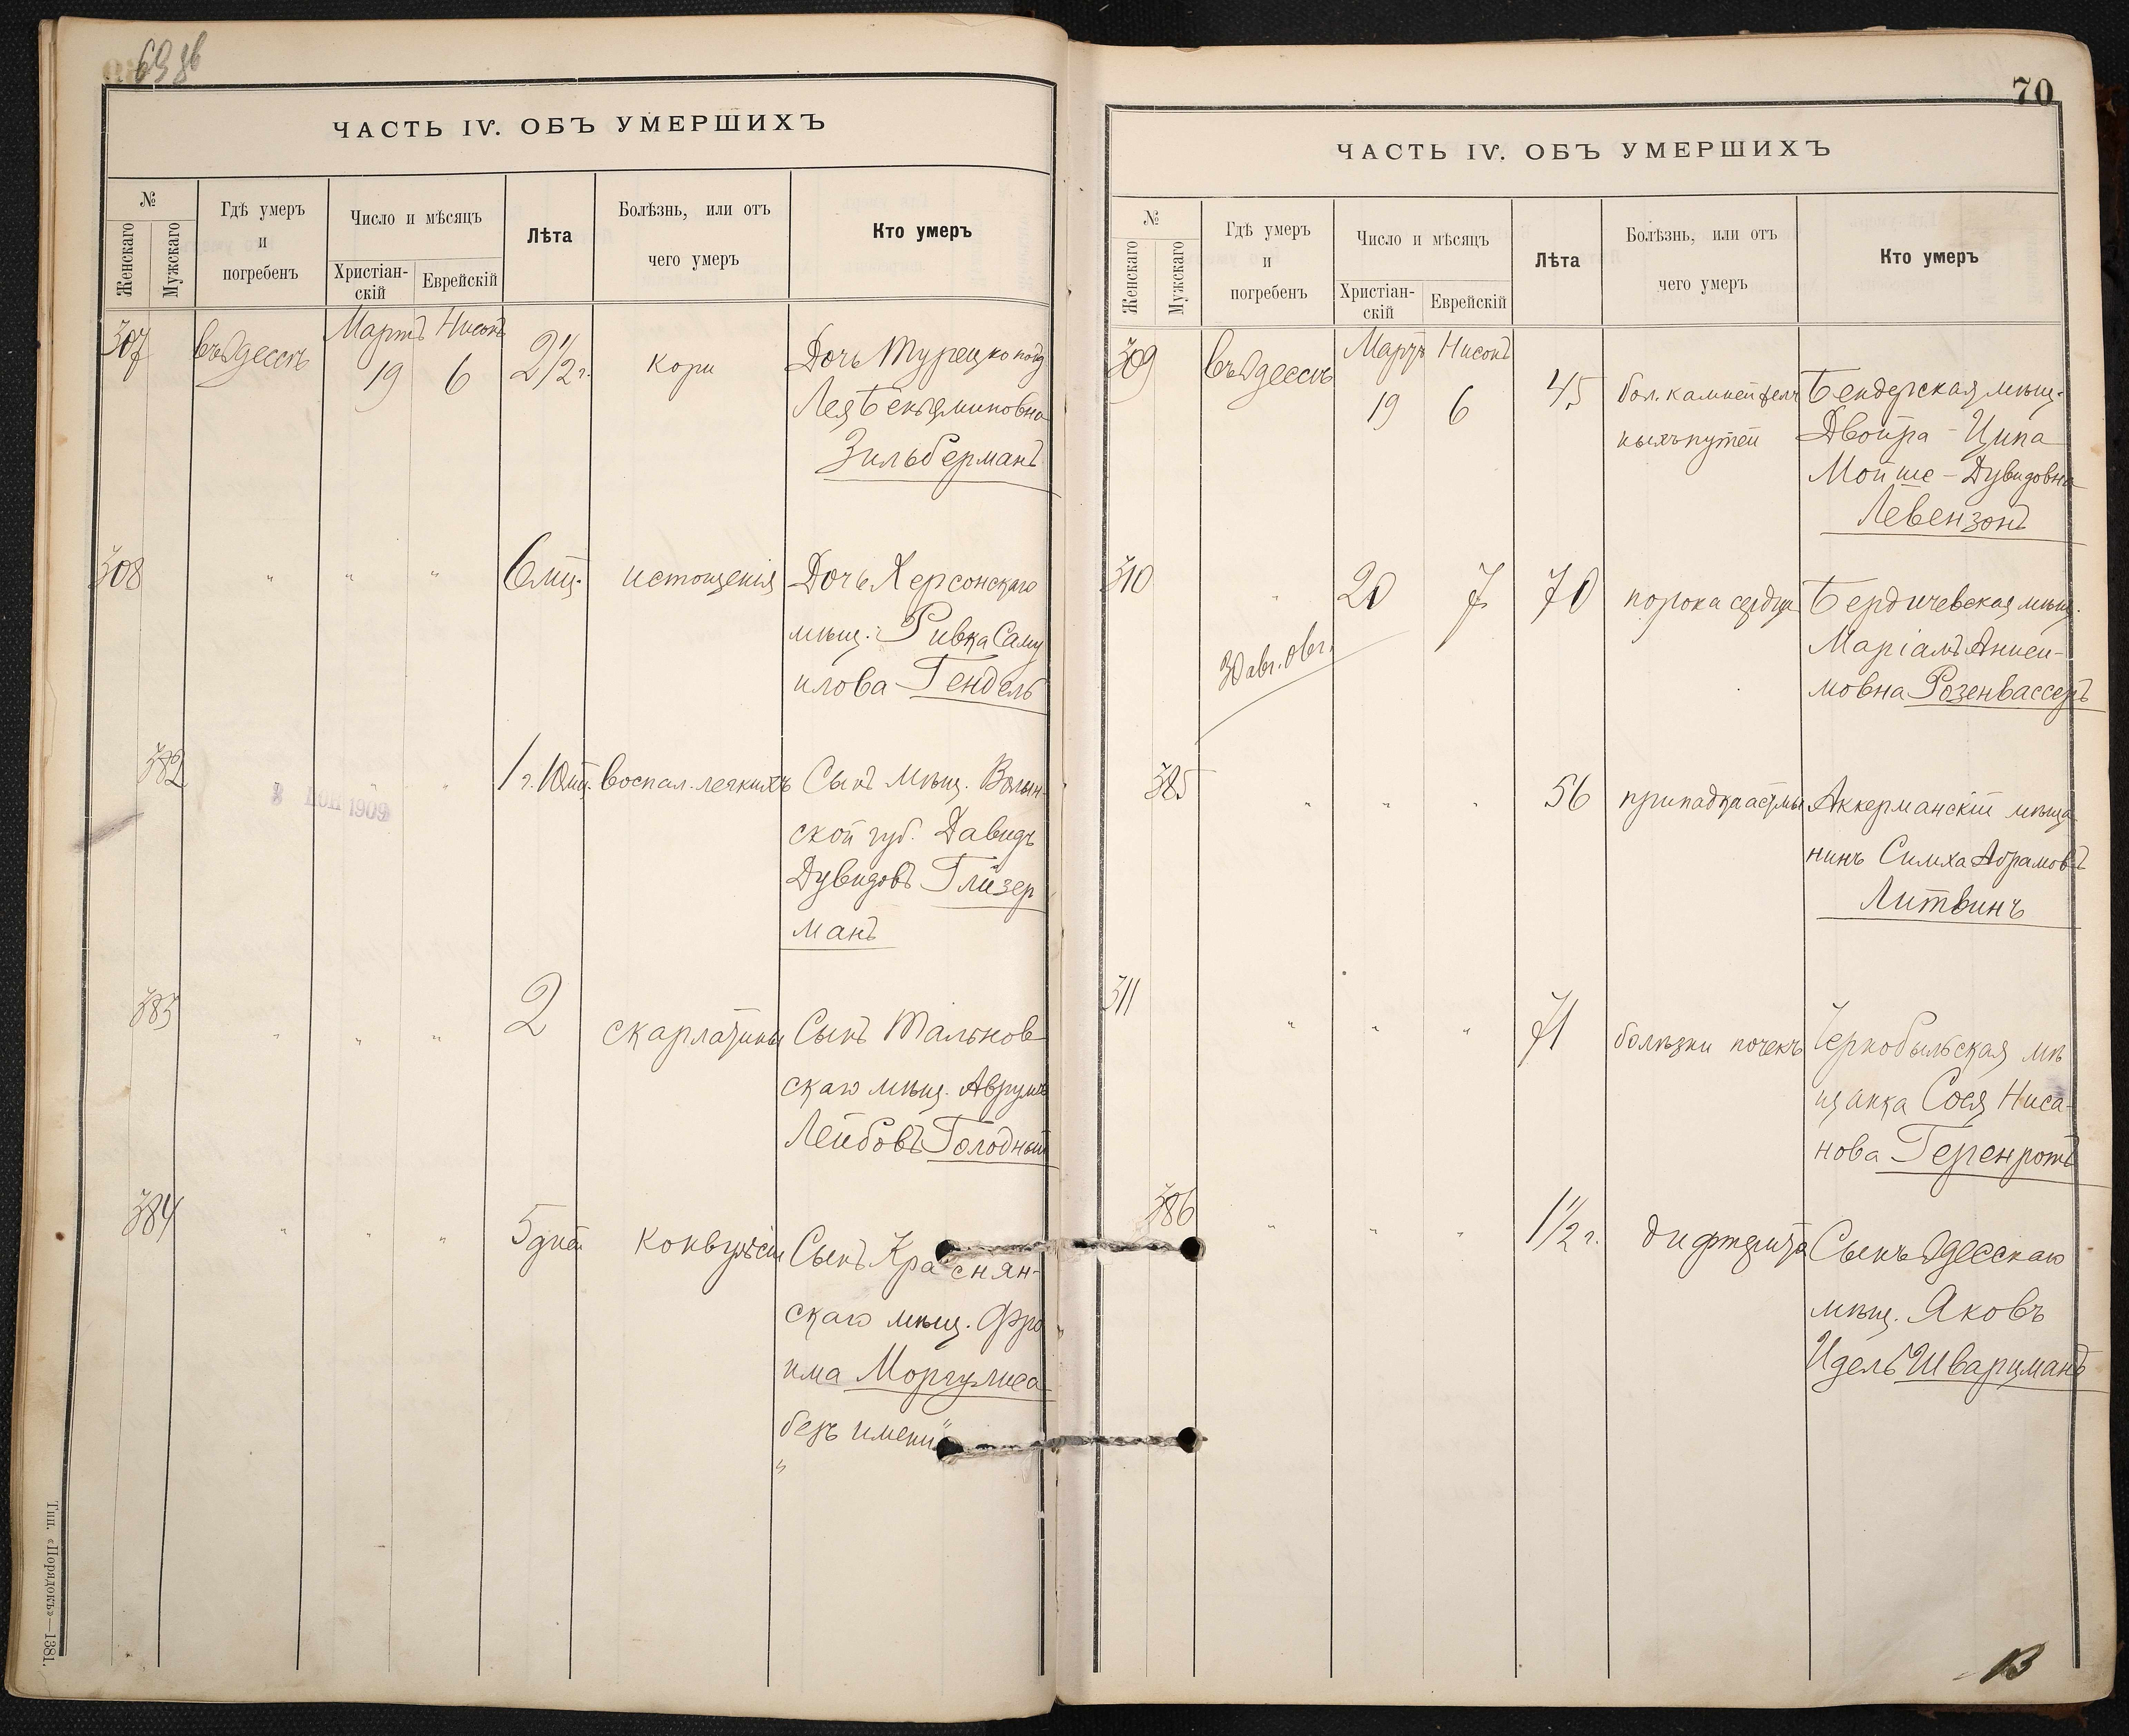 69 об
ЧАСТЬ IV. ОБЪ УМЕРШИХЪ
№
Женскаго
Мужскаго
Гдѣ умеръ
и
погребенъ
Число и мѣсяцъ
Христіан-
скій
Еврейскій
Лѣта
Болѣзнь, или отъ
чего умеръ
Кто умеръ
307 въ Одессѣ Мартъ 19 Нисонъ 6 2 1/2 г. кори Дочь Турецко под
Лея Беньяминовна
Зильберманъ
308 " " " 6 мц. истощенія Дочь Херсонскаго
мѣщ. Ривка Саму
илова Гендель
382 " " 1 г. 10 мц. воспал. легкихъ Сынъ мѣщ. Волын-
ской губ. Давидъ
Дувидовъ Глизер
манъ
1909
383 " " " 2 скарлатины Сынъ Тальнов
скаго мѣщ. Аврумъ
Лейбовъ Голодный
384 " " " 5 дней конвульсіи Сынъ Краснян-
скаго мѣщ. Фро
има Моргулиса
"безъ имени"
Тип. «Порядокъ»—1381.
70
ЧАСТЬ IV. ОБЪ УМЕРШИХЪ
№
Женскаго
Мужскаго
Гдѣ умеръ
и
погребенъ
Число и мѣсяцъ
Христіан-
скій
Еврейскій
Лѣта
Болѣзнь, или отъ
чего умеръ
Кто умеръ
309 въ Одессѣ Мартъ 19 Нисонъ 6 45 бол. камней желч Бендерская мѣщ.
ныхъ путей Двойра-Ципа
Мойше-Дувидовна
Левензонъ
310 " 20 7 70 порока сердца Бердичевская мѣщ.
Маріамъ Аниси-
мовна Розенвассеръ
385 " " " 56 припадка астмы Аккерманскій мѣща
нинъ Симха Абрамовъ
Литвинъ
311 " " " 71 болѣзни почекъ Чернобыльская мѣ
щанка Сося Ниса-
нова Геренротъ
386 " " " 1 1/2 г. дифтерита Сынъ Одесскаго
мѣщ. Яковъ
Идель Шварцманъ